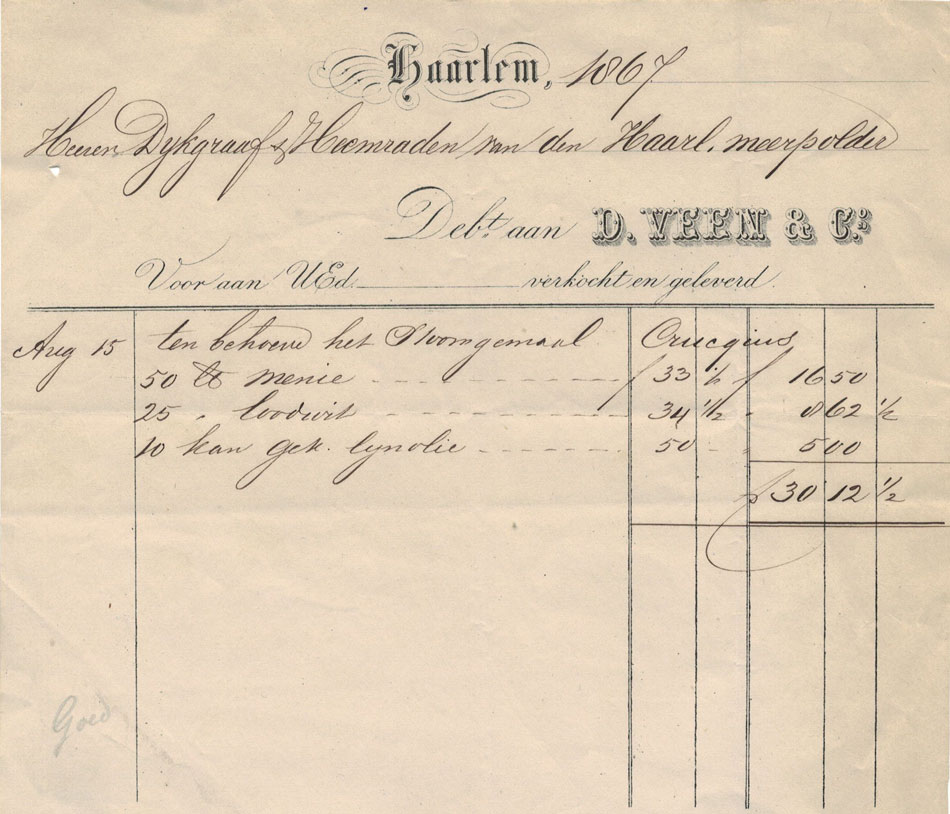 Haarlem, 1867
Heeren Dykgraaf & Heemraden van den Haarl. meerpolder
Debt. aan D. VEEN & Co.
Voor aan UEd. verkocht en geleverd.
Aug 15 ten behoeve het Stoomgemaal Crucquius
50 ℔ menie f 33 ½ f 16 50
25 " loodwit 34 ½ " 8 62 ½
10 kan gek. lynolie 50 - " 5 00
f 30 12 ½
Goed